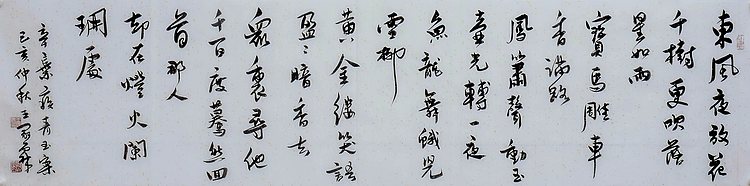 東風夜放花
千樹更吹落
星如雨
寶馬雕車
香滿路
鳳簫聲動玉
壺光轉一夜
魚龍舞蛾兒
雪柳
黃金縷笑語
盈〻暗香去
眾裏尋他
千百度驀然回
首那人
却在燈火闌
珊處
辛棄疾青玉案
己亥仲秋王